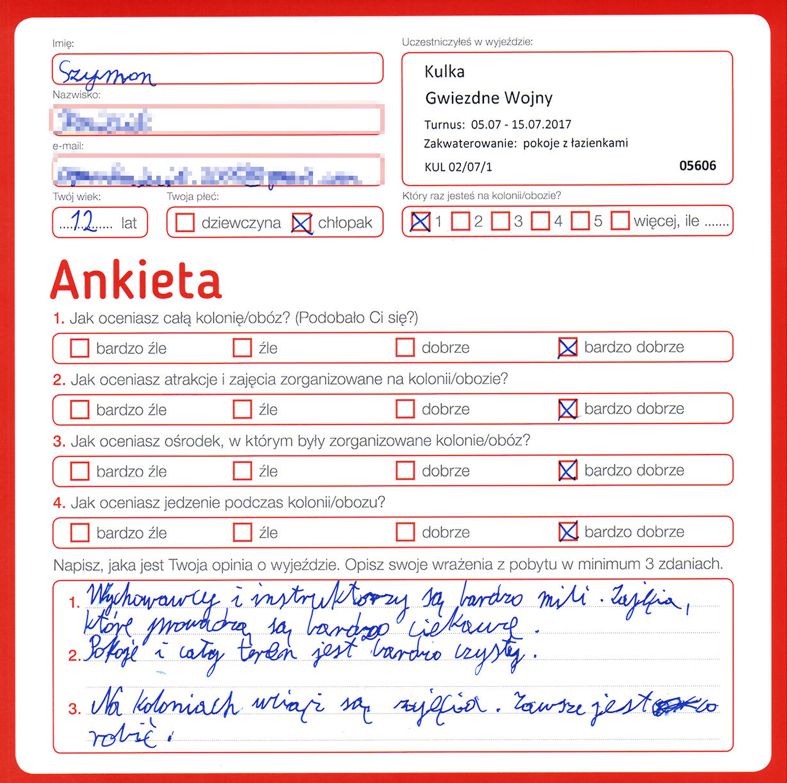 Imię:
Uczestniczyłeś w wyjeździe:
Szymon
Kulka
Nazwisko:
Gwiezdne Wojny
Turnus: 05.07 - 15.07.2017
e-mail:
Zakwaterowanie: pokoje z łazienkami
KUL 02/07/1 05606
Twój wiek: Twoja płeć: Który raz jesteś na kolonii/obozie?
....12.... lat dziewczyna chłopak 1 2 3 4 5 więcej, ile .......
Ankieta
1. Jak oceniasz całą kolonię/obóz? (Podobało Ci się?)
bardzo źle źle dobrze bardzo dobrze
2. Jak oceniasz atrakcje i zajęcia zorganizowane na kolonii/obozie?
bardzo źle źle dobrze bardzo dobrze
3. Jak oceniasz ośrodek, w którym były zorganizowane kolonie/obóz?
bardzo źle źle dobrze bardzo dobrze
4. Jak oceniasz jedzenie podczas kolonii/obozu?
bardzo źle źle dobrze bardzo dobrze
Napisz, jaka jest Twoja opinia o wyjeździe. Opisz swoje wrażenia z pobytu w minimum 3 zdaniach.
1. Wychowawcy i instruktorzy są bardzo mili. Zajęcia,
które prowadzą są bardzo ciekawe.
2. Pokoje i cały teren jest bardzo czysty.
3. Na koloniach wciąż są zajęcia. Zawsze jest co
robić.